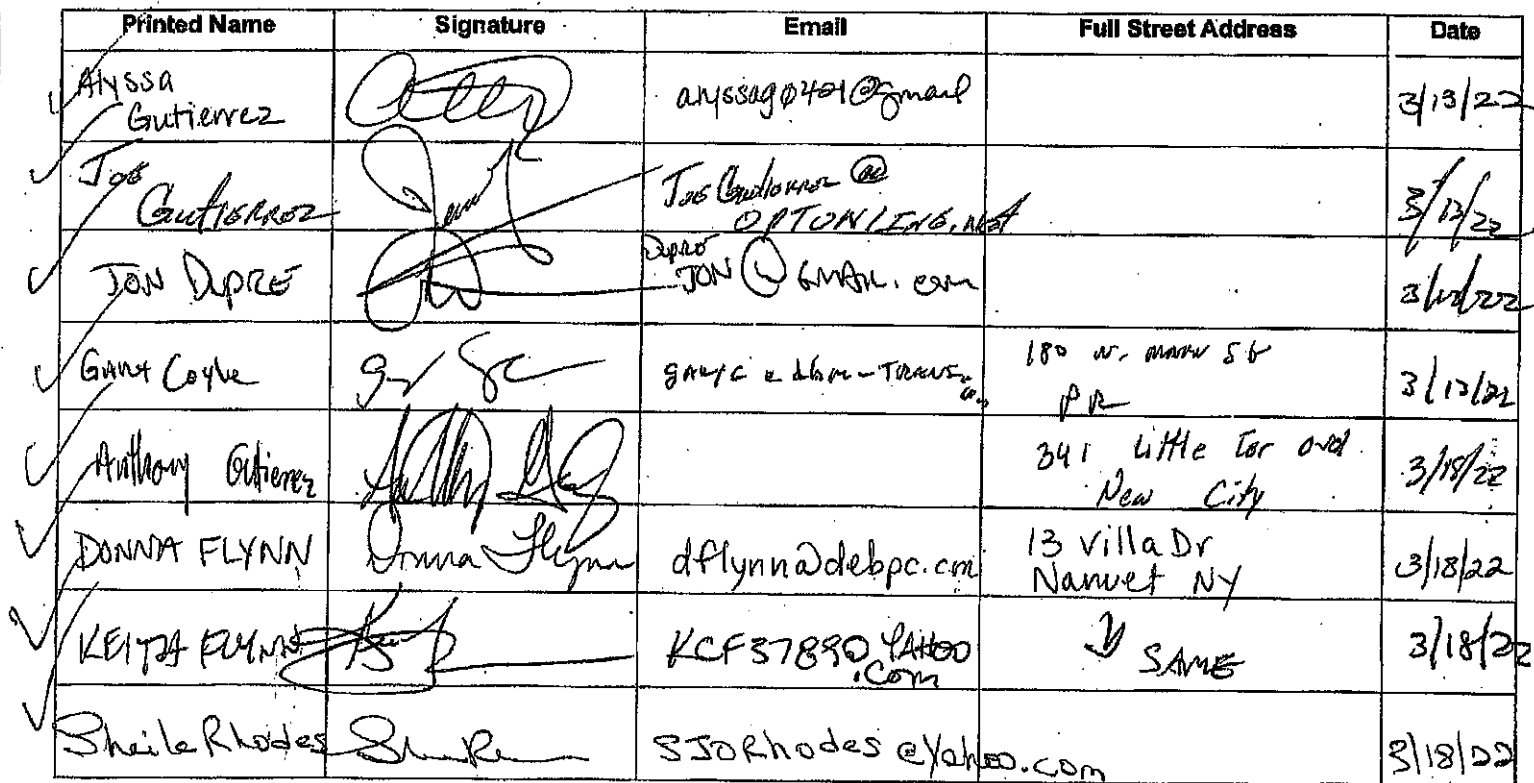 Printed Name Signature Email Full Street Address Date
Alyssa
Gutierrez
alyssag0421@gmail
3/13/22
Joe
Gutierrez
Joe Gutierrez @
OPTONLINE.net
3/13/22
JON DUPRE
Dupre
JON @ GMAIL.com
GARY Coyle
180 N. MAIN St
PR
3/13/22
Anthony Gutierrez
341 Little Tor
New City
3/18/22
DONNA FLYNN
Donna Flynn
dflynn@debpc.cm
13 Villa Dr
Nanuet NY
3/18/22
KEITH FLYNN
YAHOO
.Com
SAME
3/18/22
Sheila Rhodes
SJORhodes@Yahoo.com
3/18/22